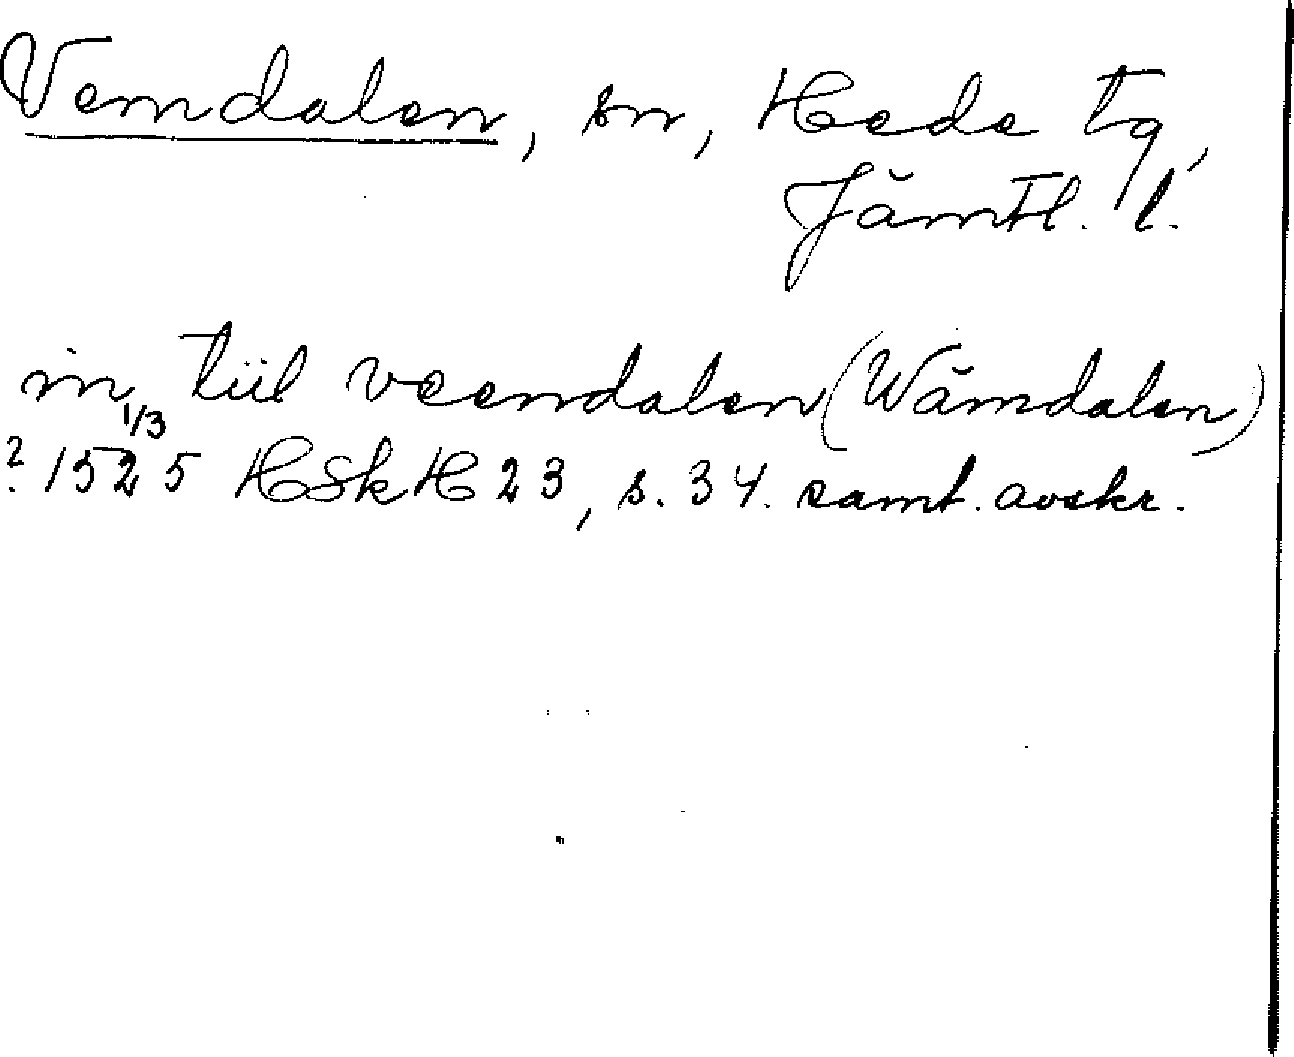 Vemdalen, sn, Hede tg,
Jämtl. l.
in tiil veemdalen (Wämdalen)
1/3
? 1525 HSkH 23, s. 34. samt. avskr.